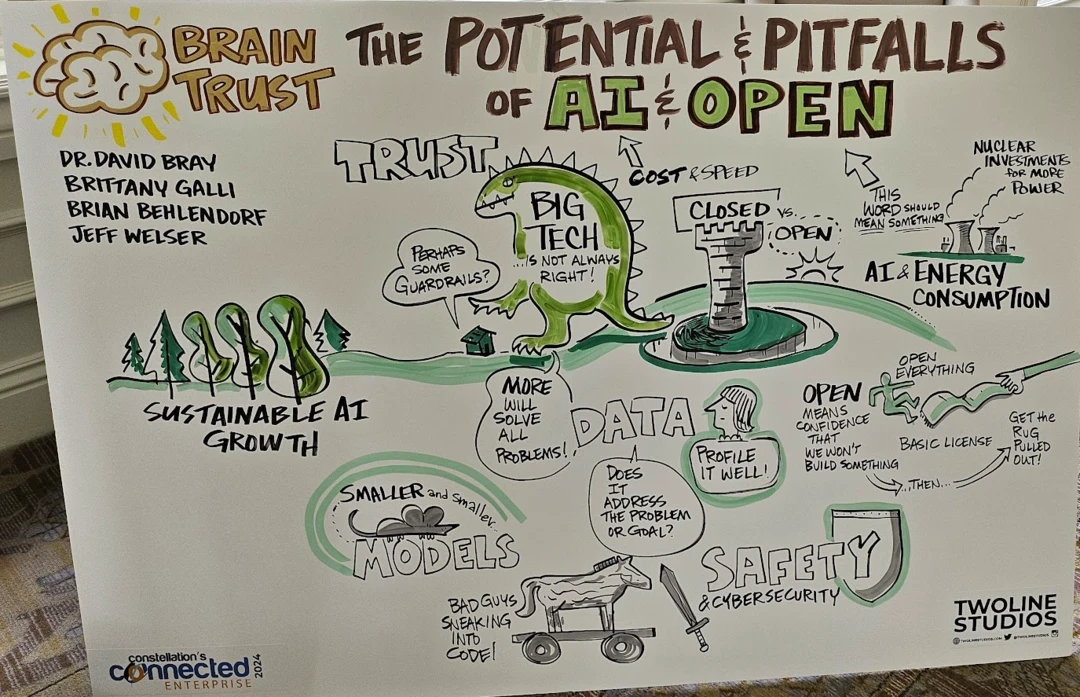 BRAIN
TRUST
THE POTENTIAL & PITFALLS
OF AI & OPEN
DR. DAVID BRAY
BRITTANY GALLI
BRIAN BEHLENDORF
JEFF WELSER
TRUST
COST & SPEED
BIG
TECH
...IS NOT ALWAYS
RIGHT!
PERHAPS
SOME
GUARDRAILS?
CLOSED
VS.
OPEN
THIS
WORD SHOULD
MEAN SOMETHING
NUCLEAR
INVESTMENTS
FOR MORE
POWER
AI & ENERGY
CONSUMPTION
SUSTAINABLE AI
GROWTH
MORE
WILL
SOLVE
ALL
PROBLEMS!
DATA
PROFILE
IT WELL!
DOES
IT
ADDRESS
THE PROBLEM
OR GOAL?
OPEN
MEANS
CONFIDENCE
THAT
WE WON'T
BUILD SOMETHING
...THEN...
OPEN
EVERYTHING
BASIC LICENSE
GET the
RUG
PULLED
OUT!
SMALLER and smaller...
MODELS
BAD GUYS
SNEAKING
INTO
CODE!
SAFETY
& CYBERSECURITY
TWOLINE
STUDIOS
TWOLINESTUDIOS.COM @TWOLINESTUDIOS
constellation's
connected
ENTERPRISE
2024